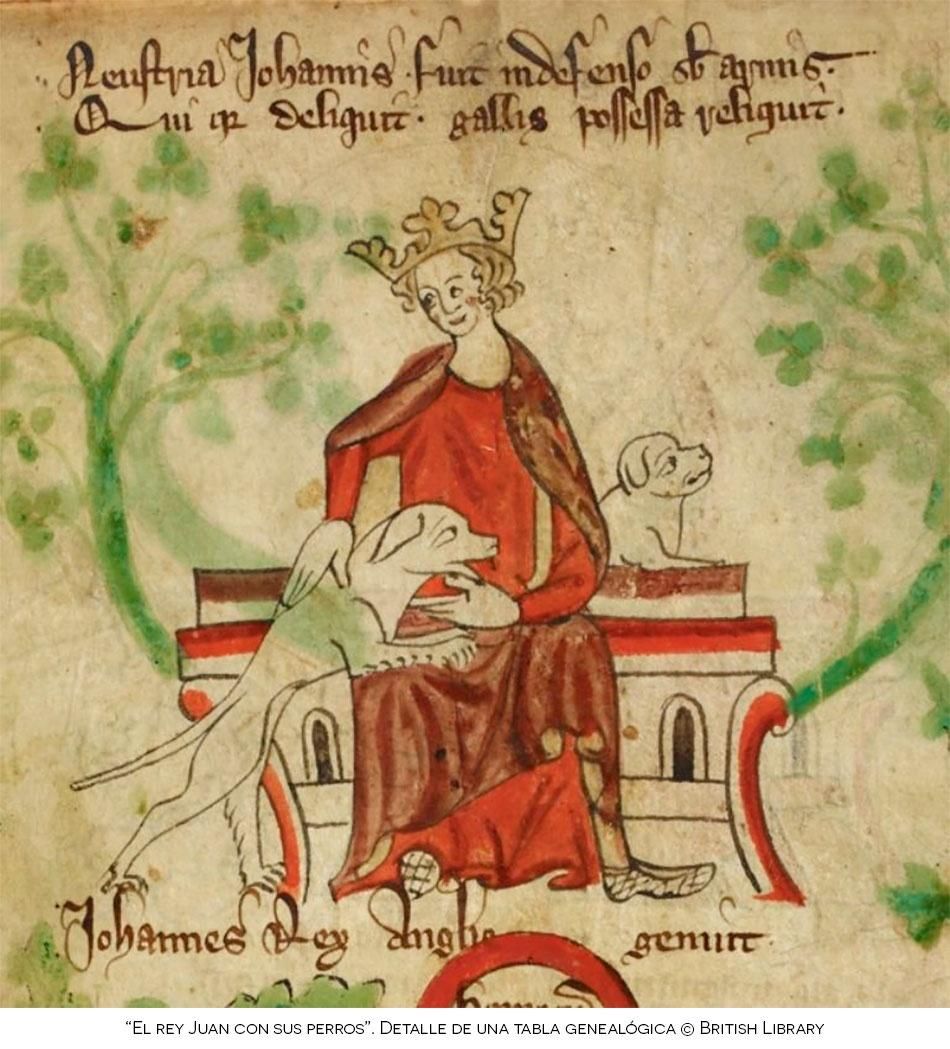 Neustria Johannis fuit indefenso sb armis.
Qui qr deliquit. gallis possessa reliquit.
Johannes Rex Anglie genuit
"El rey Juan con sus perros". Detalle de una tabla genealógica © British Library